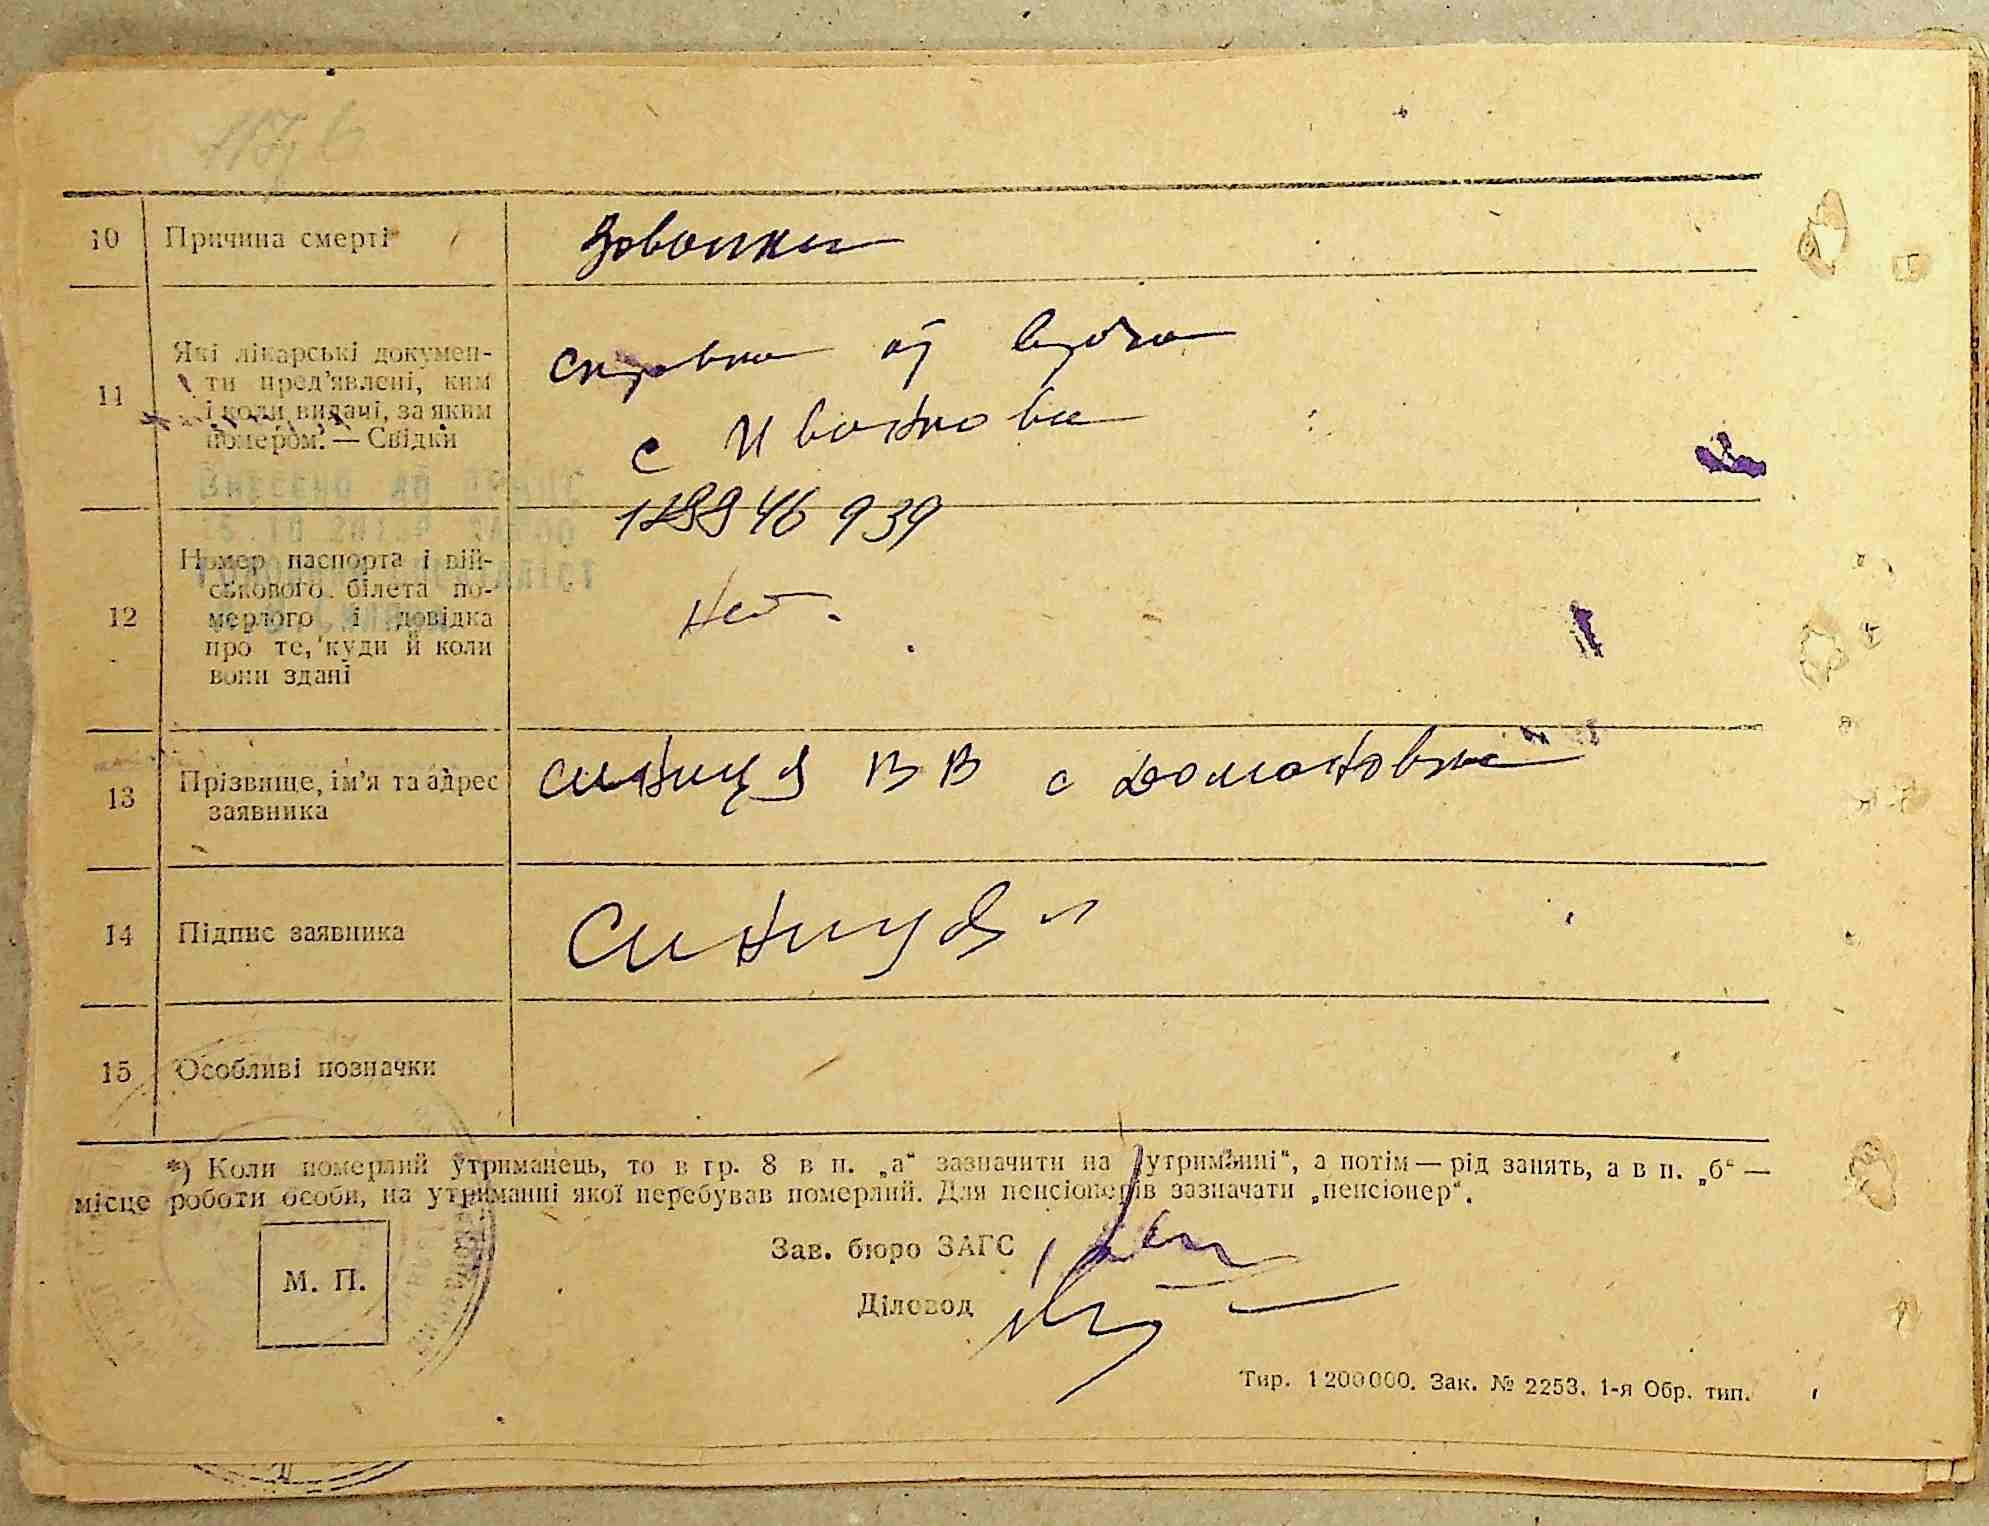 10 Причина смерті
11 Які лікарські докумен-
ти пред'явлені, ким
і коли видачі, за яким
номером. — Свідки
справка от врача
с Ивановка
939
12 Номер паспорта і вій-
ськового білета по-
мерлого і довідка
про те, куди й коли
вони здані
нет.
13 Прізвище, ім'я та адрес
заявника
Синиця В В с Домановка
14 Підпис заявника
Синиця
15 Особливі позначки
*) Коли померлий утриманець, то в гр. 8 в п. „а“ зазначити на „утриманні“, а потім — рід занять, а в п. „б“ —
місце роботи особи, на утриманні якої перебував померлий. Для пенсіонерів зазначати „пенсіонер“.
Зав. бюро ЗАГС
М. П.
Діловод
Тир. 1200000. Зак. № 2253. 1-я Обр. тип.